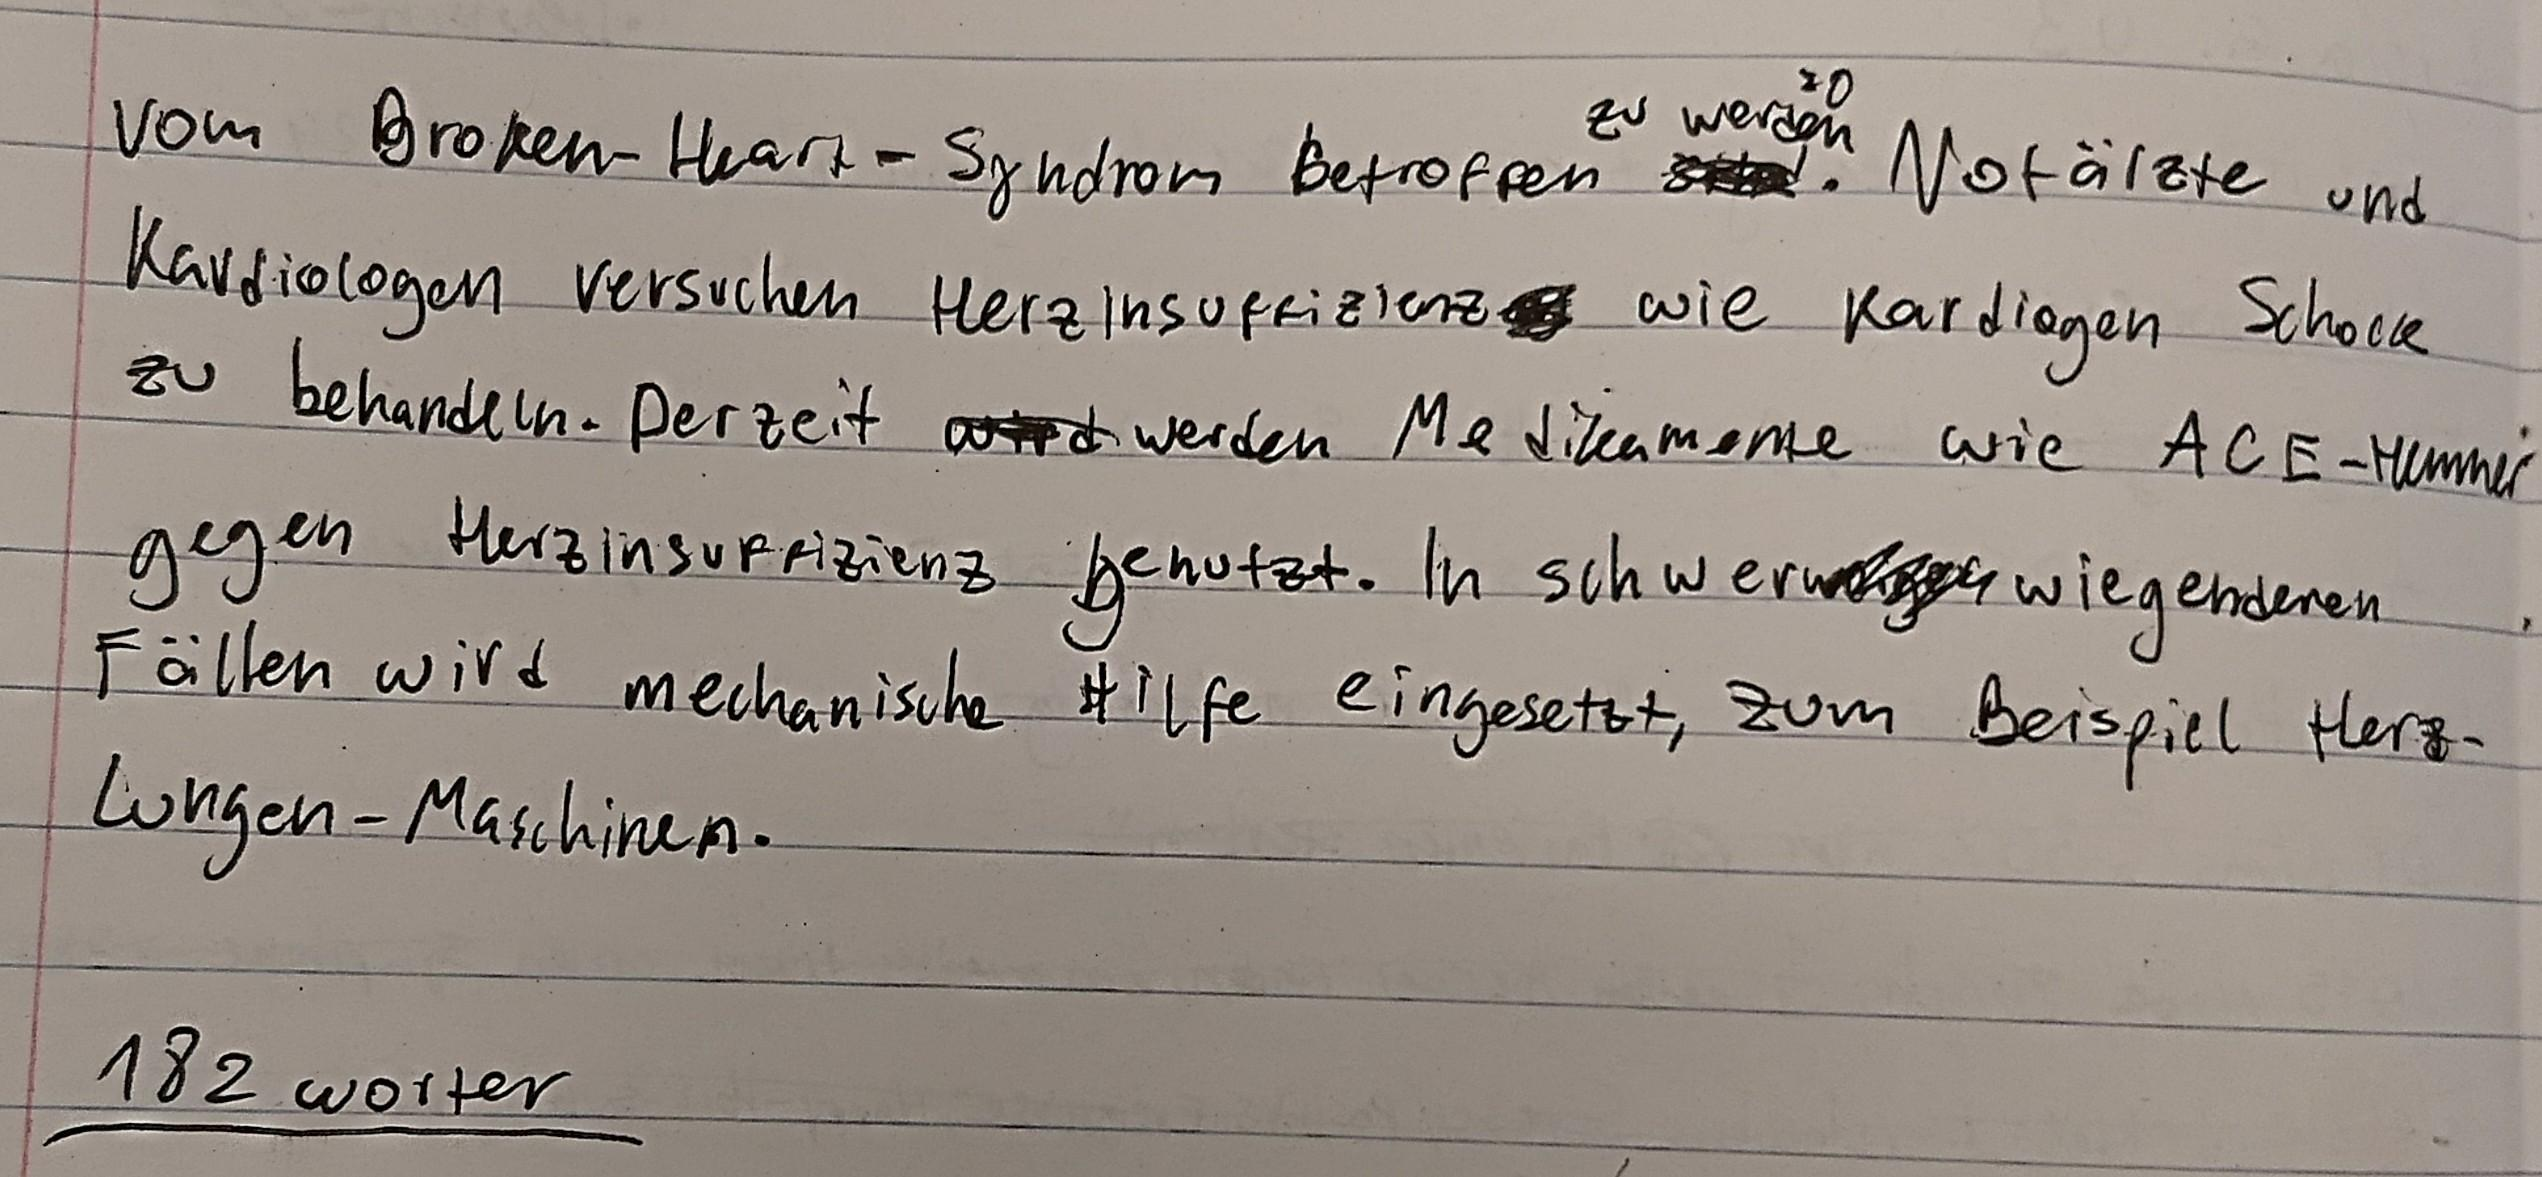 zu werden 20
vom Broken-Heart-Syndrom Betroffen . Notärzte und
Kardiologen versuchen Herzinsuffizienz wie Kardiogen Schock
zu behandeln. Derzeit wird werden Medikamente wie ACE-Hemmer
gegen Herzinsuffizienz benutzt. In schwer wiegenderen
Fällen wird mechanische Hilfe eingesetzt, zum Beispiel Herz-
Lungen-Maschinen.
182 worter